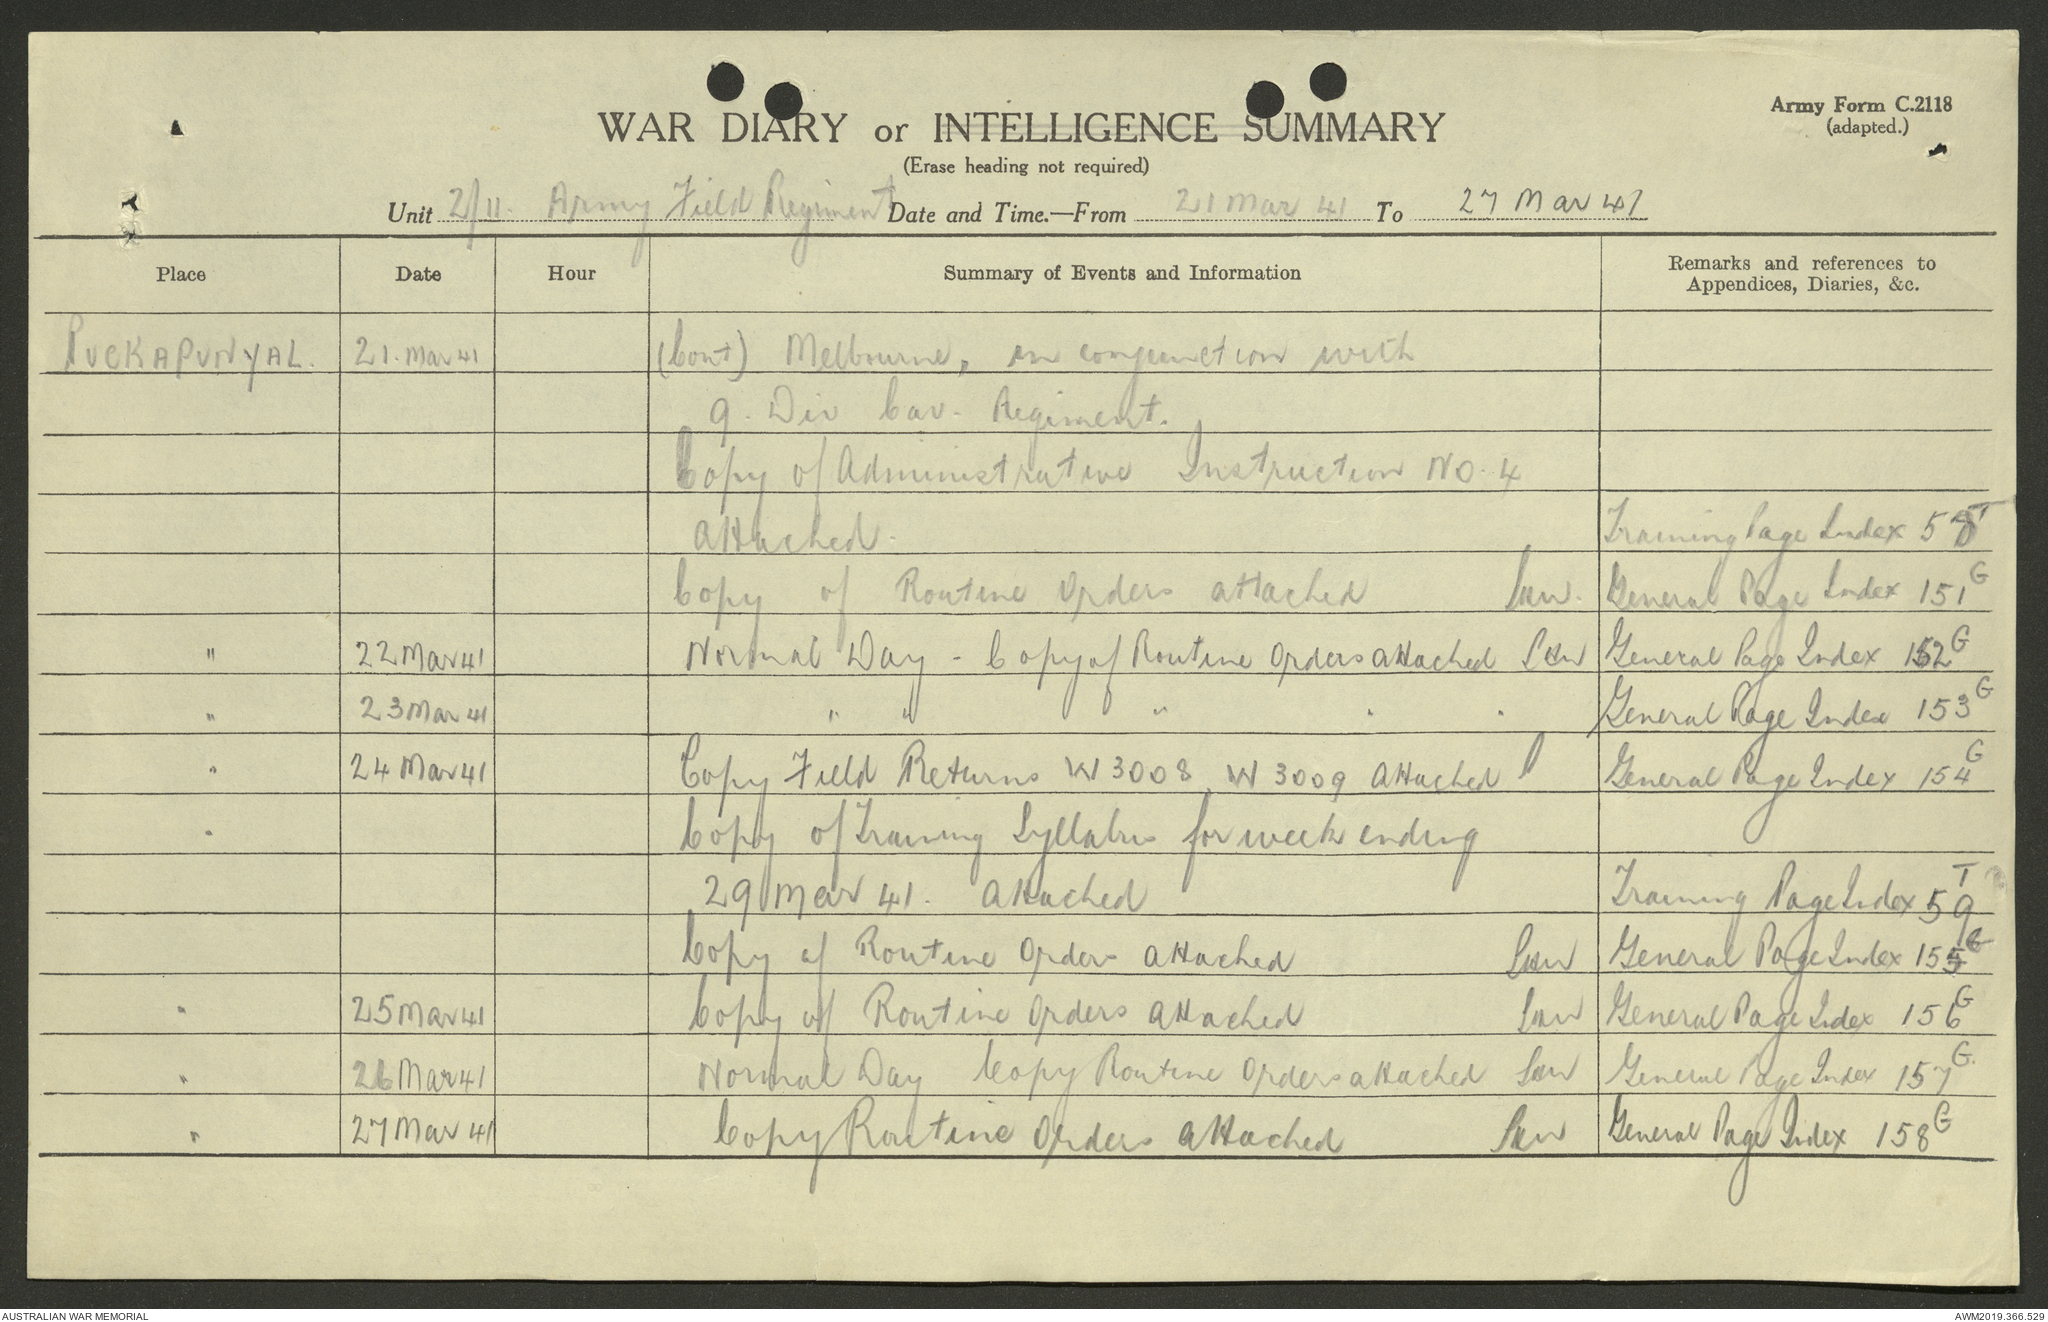 Army Form C.2118
(adapted.)
WAR DIARY or INTELLIGENCE SUMMARY
(Erase heading not required)
Unit 2/11. Army Field Regiment Date and Time.—From 21 Mar 41 To 27 Mar 41
Place Date Hour Summary of Events and Information Remarks and references to Appendices, Diaries, &c.
PUCKAPUNYAL. 21. Mar 41 (Cont) Melbourne, in conjunction with
9. Div Cav. Regiment.
Copy of Administrative Instruction No. 4
attached. Training Page Index 58 T
Copy of Routine Orders attached General Page Index 151 G
" 22 Mar 41 Normal Day - Copy of Routine Orders attached General Page Index 152 G
" 23 Mar 41 " " " " " General Page Index 153 G
" 24 Mar 41 Copy Field Returns W 3008, W 3009 attached General Page Index 154 G
" Copy of Training Syllabus for week ending
29 Mar 41. attached Training Page Index 59 T
Copy of Routine Orders attached General Page Index 155 G
" 25 Mar 41 Copy of Routine Orders attached General Page Index 156 G
" 26 Mar 41 Normal Day Copy Routine Orders attached General Page Index 157 G.
" 27 Mar 41 Copy Routine Orders attached General Page Index 158 G
AUSTRALIAN WAR MEMORIAL AWM2019.366.529